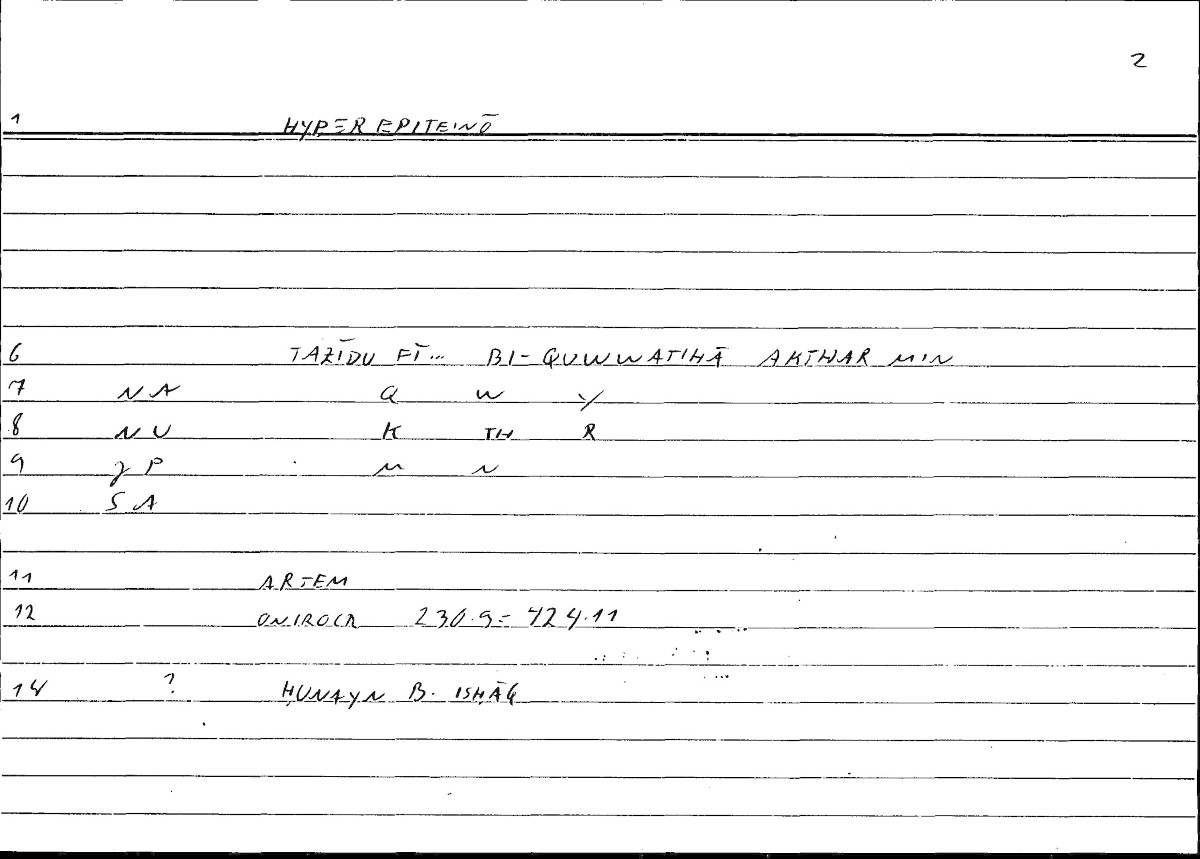 2
1 HYPER EPITEINŌ
6 TAZĪDU FĪ... BI-QUWWATIHĀ AKTHAR MIN
7 NA Q W Y
8 NU K TH R
9 γ P M N
10 S A
11 ARTEM
12 ONIROCR 230.9 = 424.11
14 ? ḤUNAYN B. ISḤĀQ